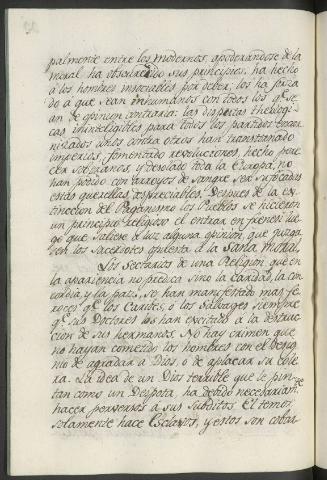 palmente entre los modernos, apoderandose de la
moral ha obscurecido sus principios, ha hecho
á los hombres insociables por deber, los ha forza
do á que sean inhumanos con todos los qe. se
an de opinion contraria: las disputas theologi
cas ininteligibles para todos los partidos encar
nizados unos contra otros han transtornado
imperios, fomentado revoluciones, hecho pere
cer soberanos, y desolado toda la Europa, no
han podido con arroyos de sangre ser sufocadas
estas querellas despreciables. Despues de la ex
tincion del Paganismo los Pueblos se hicieron
un principio religioso el entrar en frenesi lue
go que saliese á luz alguna opinion, que juzga
ron los Sacerdotes opuesta á la Sana moral.
Los Sectarios de una Religion que en
la apariencia no predica sino la caridad, la con
cordia, y la paz, se han manifestado mas fe
roces qe. los Caribes, ó los Salvages siempre
qe. sus Doctores los han excitado á la destruc
cion de sus hermanos. No hay crimen que
no hayan cometido los hombres con el desig
nio de agradar á Dios, ó de aplacar su cole
ra. La idea de un Dios terrible que le pin
tan como un Despota, ha debido necesariam.te
hacer perversos á sus subditos. El temor
solamente hace Esclavos, y estos son cobar